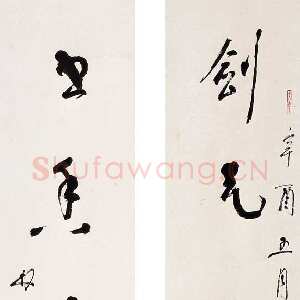 剑气
辛酉五月
书香
Shufawang.CN